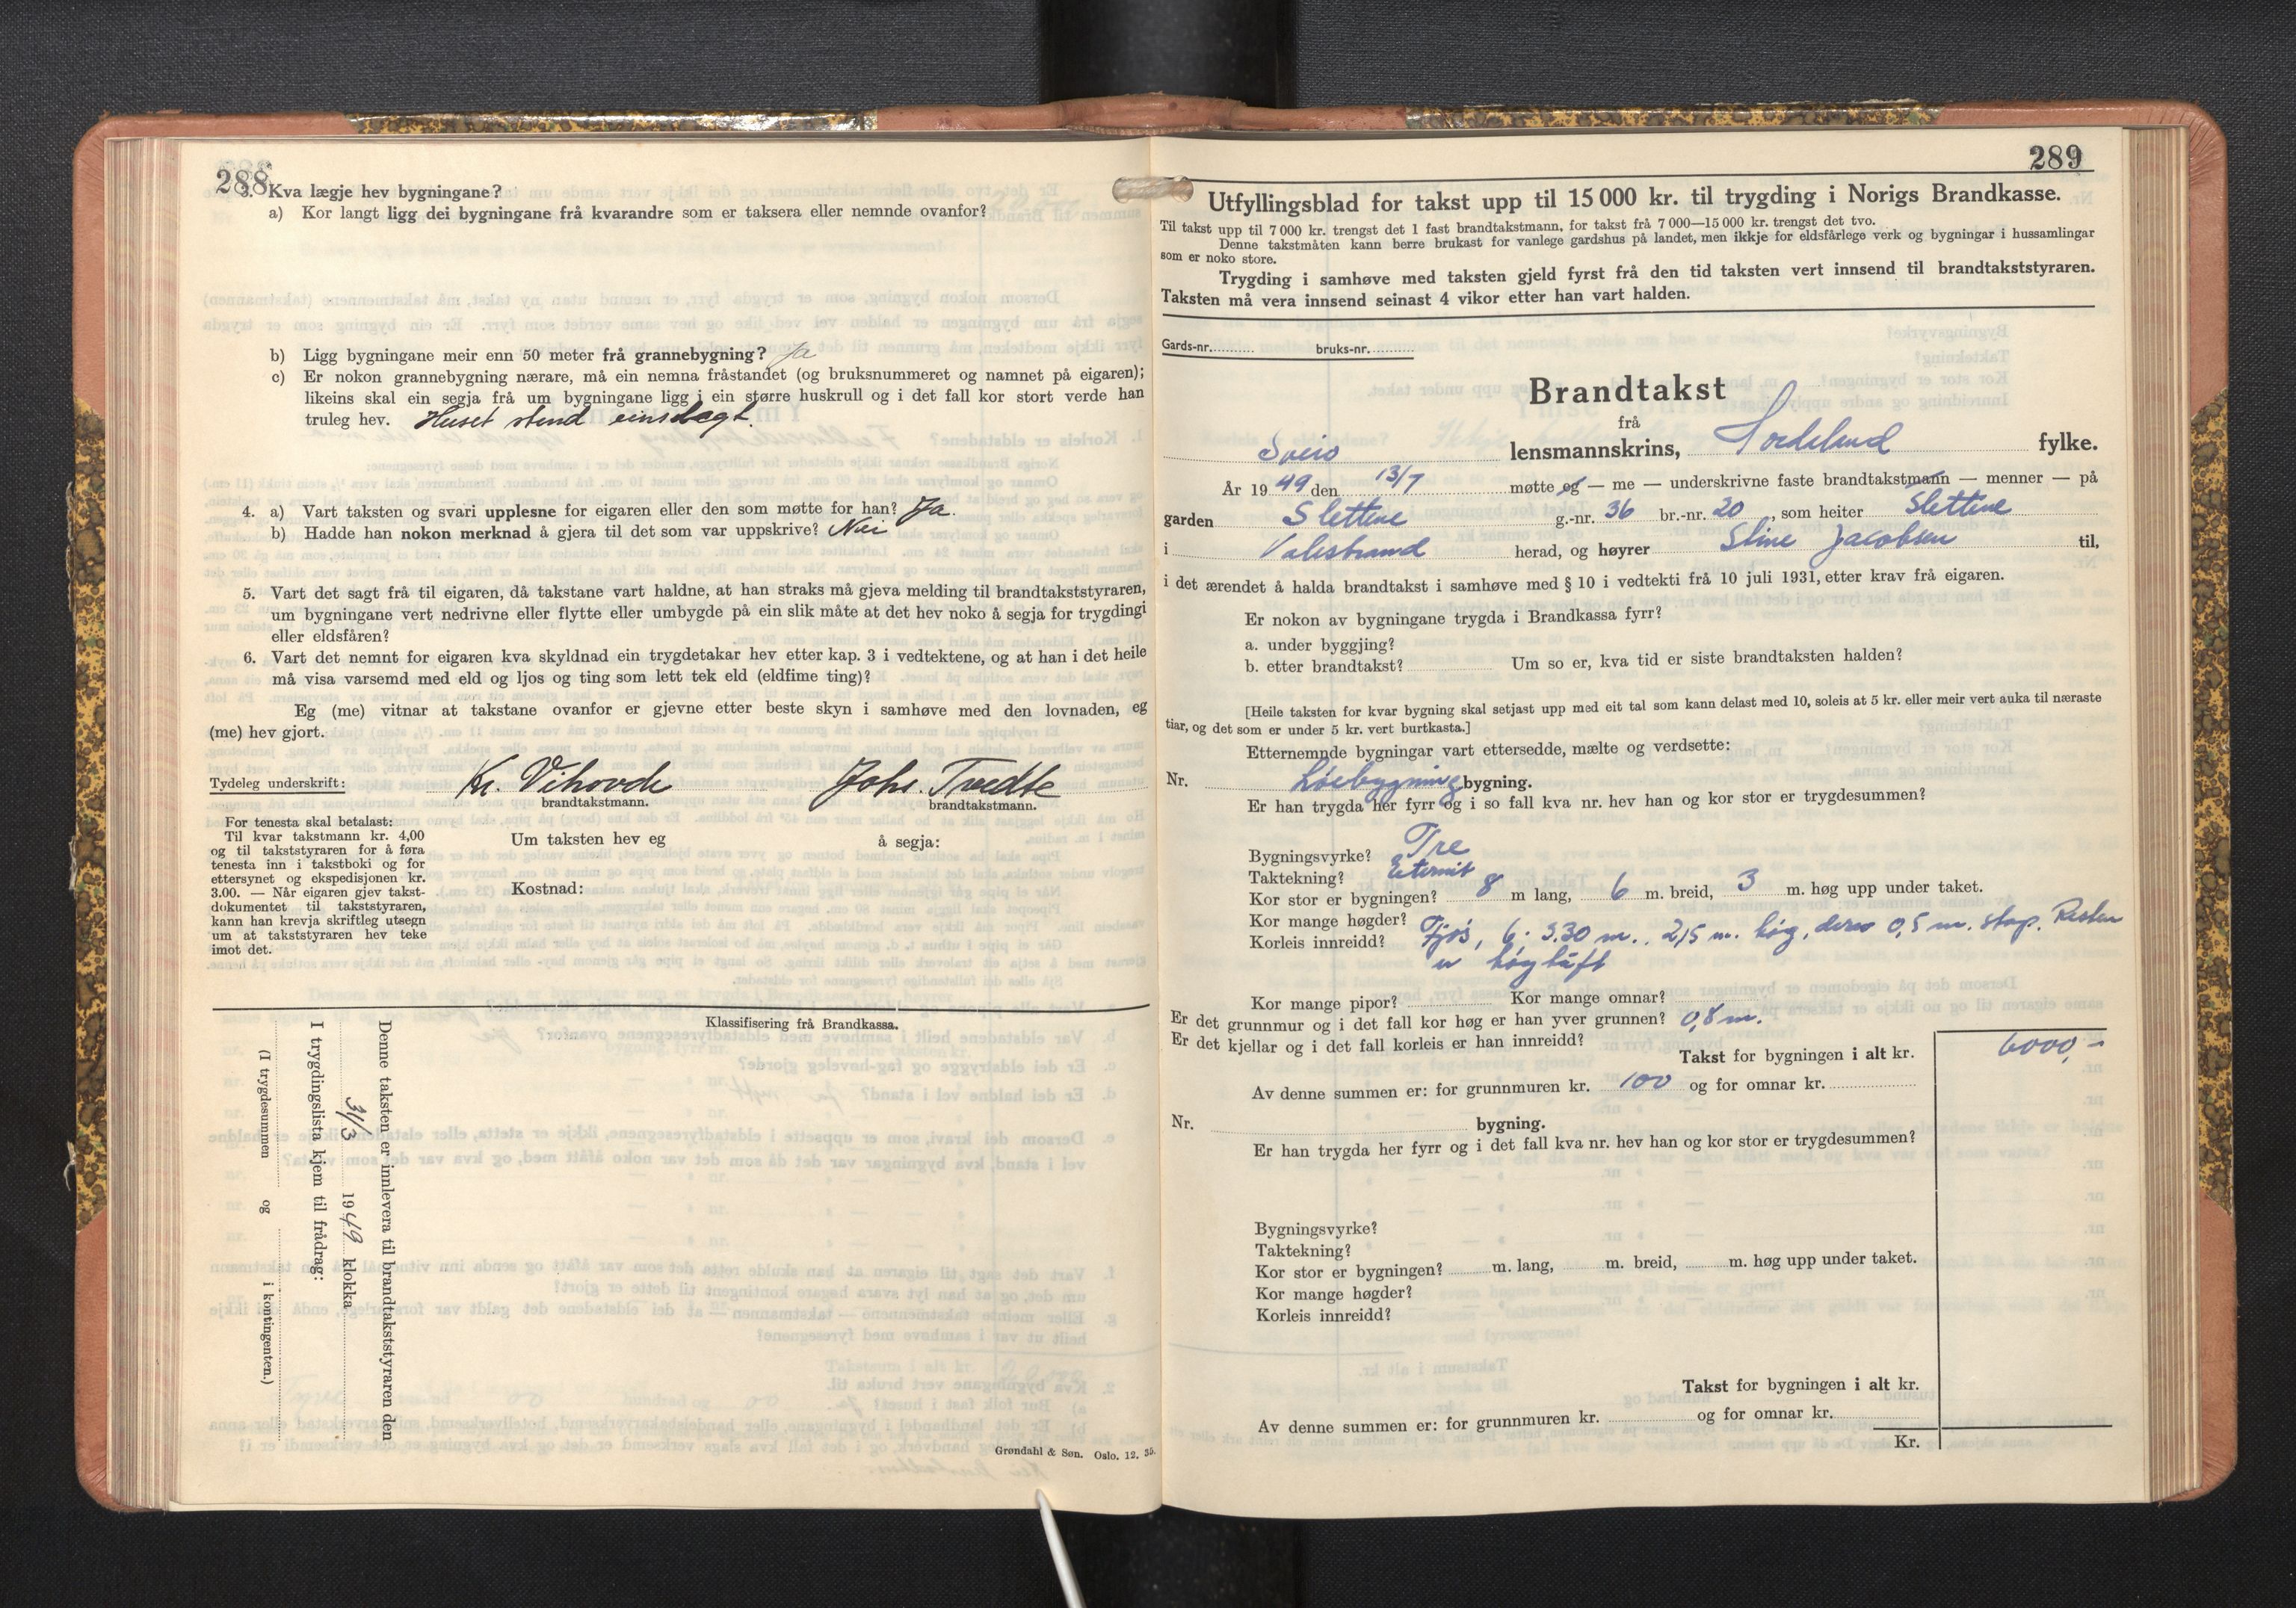 288
3. Kva lægje hev bygningane?
a) Kor langt ligg dei bygningane frå kvarandre som er taksera eller nemnde ovanfor?
b) Ligg bygningane meir enn 50 meter frå grannebygning? Ja
c) Er nokon grannebygning nærare, må ein nemna fråstandet (og bruksnummeret og namnet på eigaren);
likeins skal ein segja frå um bygningane ligg i ein større huskrull og i det fall kor stort verde han
truleg hev. Huset stend einslegt.
4. a) Vart taksten og svari upplesne for eigaren eller den som møtte for han? Ja.
b) Hadde han nokon merknad å gjera til det som var uppskrive? Nei
5. Vart det sagt frå til eigaren, då takstane vart haldne, at han straks må gjeva melding til brandtakststyraren,
um bygningane vert nedrivne eller flytte eller umbygde på ein slik måte at det hev noko å segja for trygdingi
eller eldsfåren?
6. Vart det nemnt for eigaren kva skyldnad ein trygdetakar hev etter kap. 3 i vedtektene, og at han i det heile
må visa varsemd med eld og ljos og ting som lett tek eld (eldfime ting)?
Eg (me) vitnar at takstane ovanfor er gjevne etter beste skyn i samhøve med den lovnaden, eg
(me) hev gjort.
Tydeleg underskrift: Kr. Vihovde Johs. Tvedte
brandtakstmann. brandtakstmann.
For tenesta skal betalast:
Til kvar takstmann kr. 4,00
og til takststyraren for å føra
tenesta inn i takstboki og for
ettersynet og ekspedisjonen kr.
3.00. — Når eigaren gjev takst-
dokumentet til takststyraren,
kann han krevja skriftleg utsegn
um at takststyraren hev teke
imot det.
Um taksten hev eg å segja:
Kostnad:
Klassifisering frå Brandkassa.
Denne taksten er innlevera til brandtakststyraren den
31/3 1949 klokka
I trygdingslista kjem til frådrag:
(I trygdesummen og i kontingenten.)
Grøndahl & Søn. Oslo. 12. 35.
289
Utfyllingsblad for takst upp til 15 000 kr. til trygding i Norigs Brandkasse.
Til takst upp til 7 000 kr. trengst det 1 fast brandtakstmann, for takst frå 7 000—15 000 kr. trengst det tvo.
Denne takstmåten kann berre brukast for vanlege gardshus på landet, men ikkje for eldsfårlege verk og bygningar i hussamlingar
som er noko store.
Trygding i samhøve med taksten gjeld fyrst frå den tid taksten vert innsend til brandtakststyraren.
Taksten må vera innsend seinast 4 vikor etter han vart halden.
Gards-nr. bruks-nr.
Brandtakst
frå
Sveio lensmannskrins, Hordaland fylke.
År 1949 den 13/7 møtte eg — me — underskrivne faste brandtakstmann — menner — på
garden Slettene g.-nr. 36 br.-nr. 20, som heiter Slettene
i Valestrand herad, og høyrer Stine Jacobsen til,
i det ærendet å halda brandtakst i samhøve med § 10 i vedtekti frå 10 juli 1931, etter krav frå eigaren.
Er nokon av bygningane trygda i Brandkassa fyrr?
a. under byggjing?
b. etter brandtakst? Um so er, kva tid er siste brandtaksten halden?
[Heile taksten for kvar bygning skal setjast upp med eit tal som kann delast med 10, soleis at 5 kr. eller meir vert auka til næraste
tiar, og det som er under 5 kr. vert burtkasta.]
Etternemnde bygningar vart ettersedde, mælte og verdsette:
Nr. Løebygning bygning.
Er han trygda her fyrr og i so fall kva nr. hev han og kor stor er trygdesummen?
Bygningsvyrke? Tre
Taktekning? Eternit
Kor stor er bygningen? 8 m lang, 6 m. breid, 3 m. høg upp under taket.
Kor mange høgder?
Korleis innreidd? Fjøs, 6 · 3.30 m., 2,5 m. høg, derav 0,5 m. støp. Resten
er høyløft
Kor mange pipor? Kor mange omnar?
Er det grunnmur og i det fall kor høg er han yver grunnen? 0,8 m.
Er det kjellar og i det fall korleis er han innreidd?
Takst for bygningen i alt kr. 6000,-
Av denne summen er: for grunnmuren kr. 100 og for omnar kr.
Nr. bygning.
Er han trygda her fyrr og i det fall kva nr. hev han og kor stor er trygdesummen?
Bygningsvyrke?
Taktekning?
Kor stor er bygningen? m. lang, m. breid, m. høg upp under taket.
Kor mange høgder?
Korleis innreidd?
Takst for bygningen i alt kr.
Av denne summen er: for grunnmuren kr. og for omnar kr.
Kr.